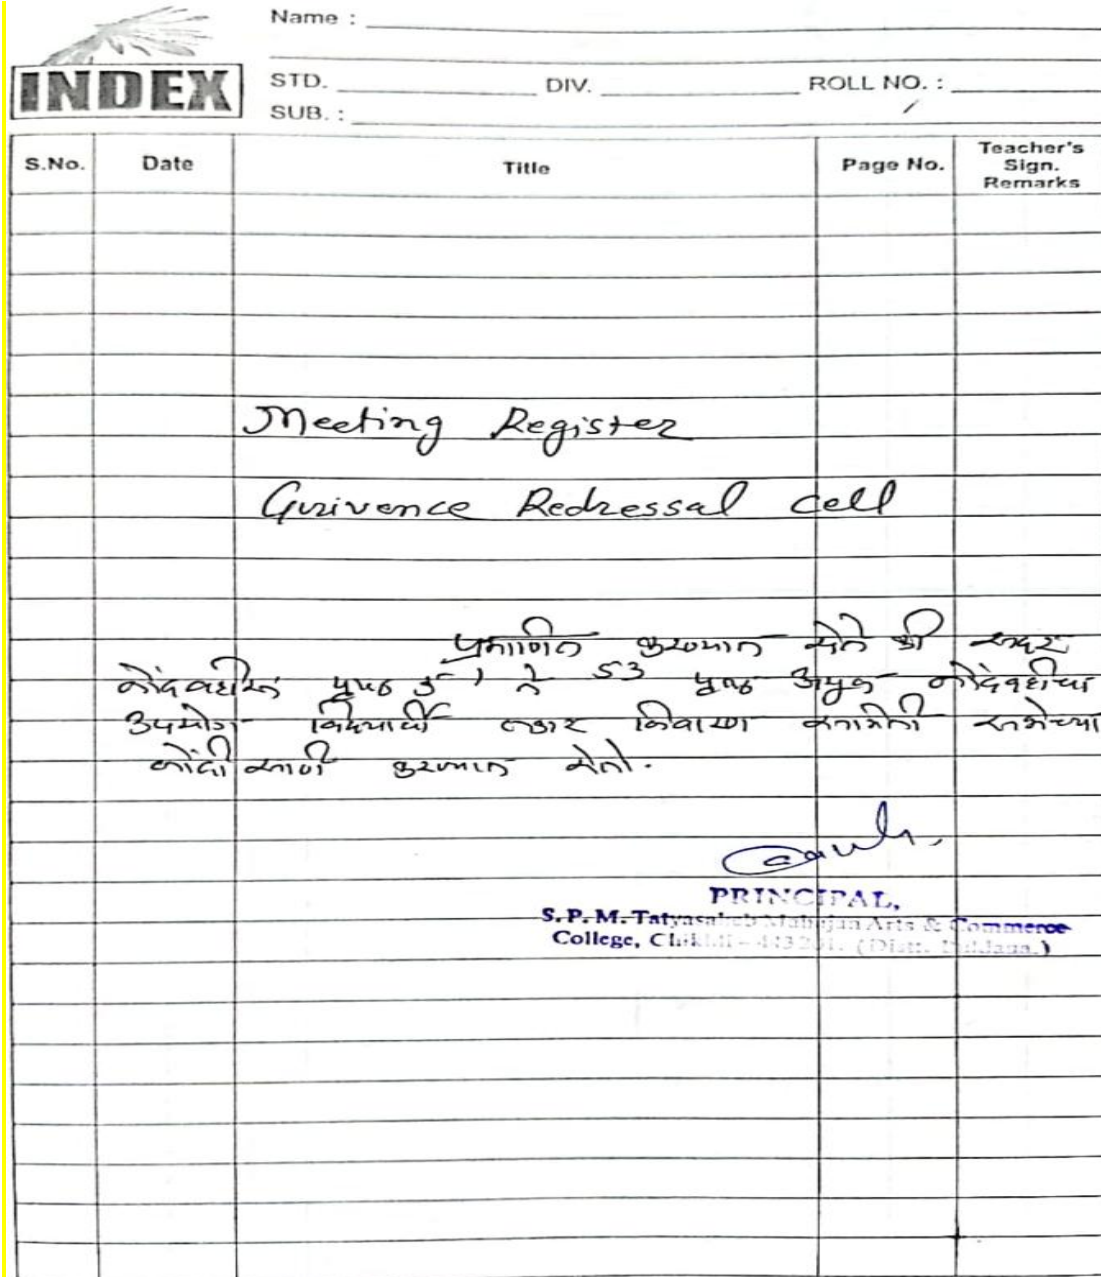 Name :
INDEX
STD. DIV. ROLL NO. :
SUB. :
S.No. Date Title Page No. Teacher's Sign. Remarks
Meeting Register
Gurivence Redressal cell
प्रमाणित करण्यात येते की सदर
नोंदवहीत पृष्ठ क्र 1 ते 53 पृष्ठ असून नोंदवहीचा
उपयोग विद्यार्थी तक्रार निवारण समितीती सभेच्या
नोंदी साठी करण्यात येतो.
PRINCIPAL,
S. P. M. Tatyasaheb Mahajan Arts & Commerce
College, Chikhli - 443201. (Distt. Buldana.)